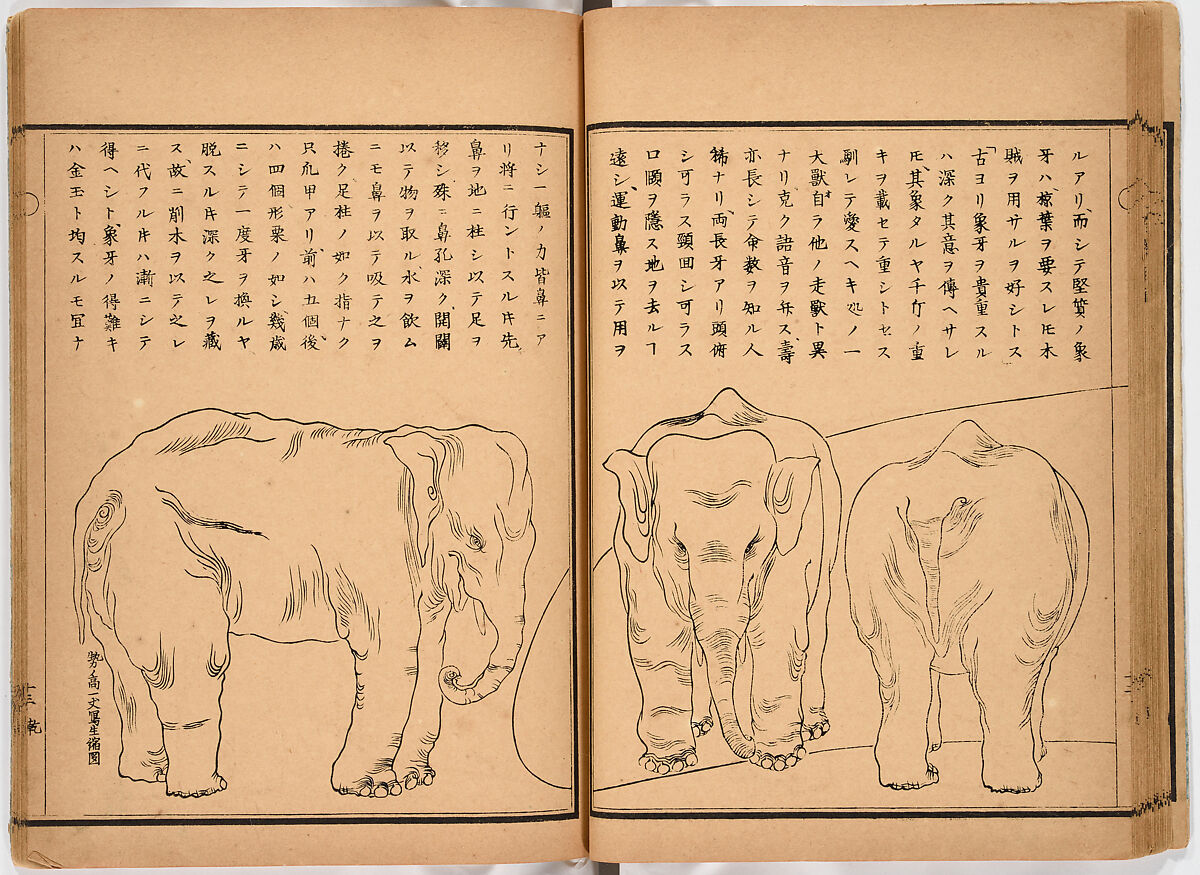 ルアリ、而シテ堅質ノ象
牙ハ椋葉ヲ要スレ𪜈木
賊ヲ用サルヲ好シトス
古ヨリ象牙ヲ貴重スル
ハ深ク其意ヲ傳ヘサレ
𪜈、其象タルヤ千斤ノ重
キヲ載セテ重シトセス
馴レテ愛スヘキ処ノ一
大獸自ラ他ノ走獸ト異
ナリ克ク語音ヲ弁ス、壽
亦長シテ命数ヲ知ル人
稀ナリ、両長牙アリ頭俯
シ可ラス頸回シ可ラス
口頤ヲ隠ス地ヲ去ルヿ
遠シ、運動鼻ヲ以テ用ヲ
ナシ一軀ノ力皆鼻ニア
リ将ニ行ントスル𪜈先
鼻ヲ地ニ柱シ以テ足ヲ
移シ殊ニ鼻孔深ク、開闔
以テ物ヲ取ル、水ヲ飲ム
ニモ鼻ヲ以テ吸テ之ヲ
捲ク足柱ノ如ク指ナク
只爪甲アリ、前ハ五個、後
ハ四個形栗ノ如シ、幾歳
ニシテ一度牙ヲ換ルヤ
脱スル𪜈深ク之レヲ藏
ス、故ニ削木ヲ以テ之レ
ニ代フル𪜈ハ漸ニシテ
得ヘシト、象牙ノ得難キ
ハ金玉ト均スルモ冝ナ
勢ノ高一丈寫生縮圖
十三 乾